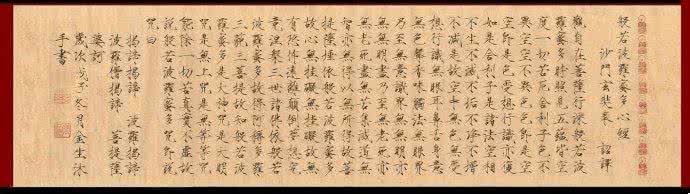 般若波羅蜜多心經
沙門玄奘奉 詔譯
觀自在菩薩行深般若波
羅蜜多時照見五蘊皆空
度一切苦厄舍利子色不
異空空不異色色即是空
空即是色受想行識亦復
如是舍利子是諸法空相
不生不滅不垢不淨不增
不減是故空中無色無受
想行識無眼耳鼻舌身意
無色聲香味觸法無眼界
乃至無意識界無無明亦
無無明盡乃至無老死亦
無老死盡無苦集滅道無
智亦無得以無所得故菩
提薩埵依般若波羅蜜多
故心無罣礙無罣礙故無
有恐怖遠離顛倒夢想究
竟涅槃三世諸佛依般若
波羅蜜多故得阿耨多羅
三藐三菩提故知般若波
羅蜜多是大神咒是大明
咒是無上咒是無等等咒
能除一切苦真實不虛故
說般若波羅蜜多咒即說
咒曰
揭諦揭諦 波羅揭諦
波羅僧揭諦 菩提薩
婆訶
歲次戊子冬月金生沐
手書